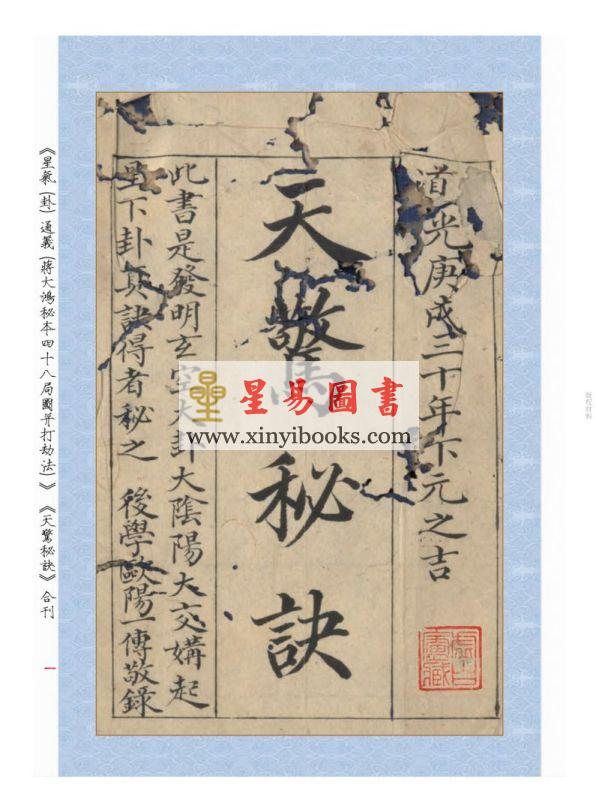 道光庚戌三十年下元之吉
虛白廬藏
天驚秘訣
此書是發明玄空大卦大陰陽大交媾起
星下卦真訣得者秘之 後學歐陽一傳敬錄
星易圖書
www.xinyibooks.com
《星氣(卦)通義(蔣大鴻秘本四十八局圖并打劫法)》《天驚秘訣》合刊
一